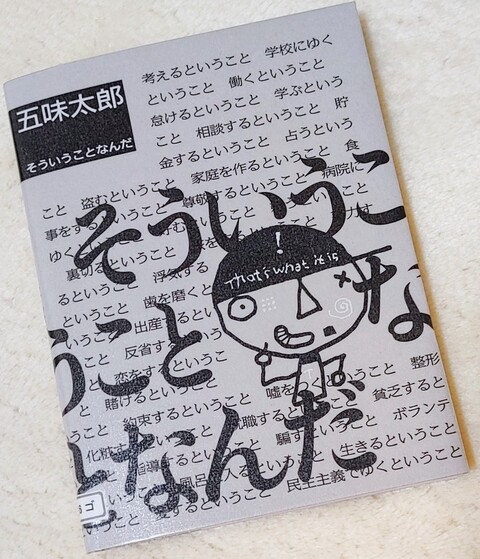 五味太郎
そういうことなんだ
考えるということ 学校にゆく
ということ 働くということ
怠けるということ 学ぶという
こと 相談するということ 貯
金するということ 占うという
こと 盗むということ 家庭を作るということ 食
事をする 尊敬するということ 病院に
ゆく
裏切るということ 浮気する
るということ 歯を磨くと
ということ 出産するとい
反省するということ
恋をする
と 賭けるということ 嘘をつくということ 整形
約束するということ 貧乏すると
いうこと 化粧 騙す ボランテ
指導する 生きるということ
風呂 入るということ
愛するということ 民主主義でゆくということ
そういうこ
な
うこと
となんだ
!
That's what it is
ゴ